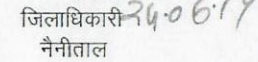 जिलाधिकारी 24.06.19
नैनीताल